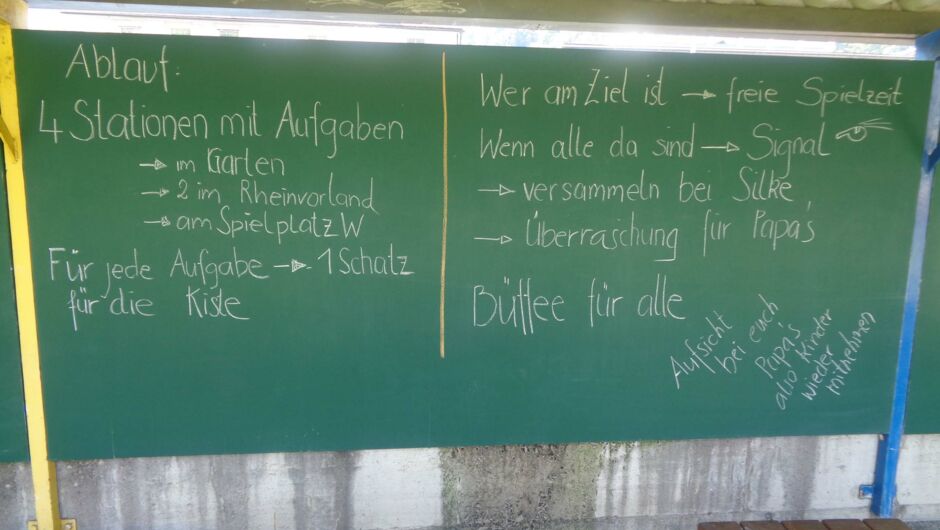 Ablauf:
4 Stationen mit Aufgaben
→ im Garten
→ 2 im Rheinvorland
→ am Spielplatz W
Für jede Aufgabe → 1 Schatz
für die Kiste
Wer am Ziel ist → freie Spielzeit
Wenn alle da sind → Signal
→ versammeln bei Silke
→ Überraschung für Papa's
Büffee für alle
Aufsicht
bei euch
Papa's
also Kinder
wieder
mitnehmen